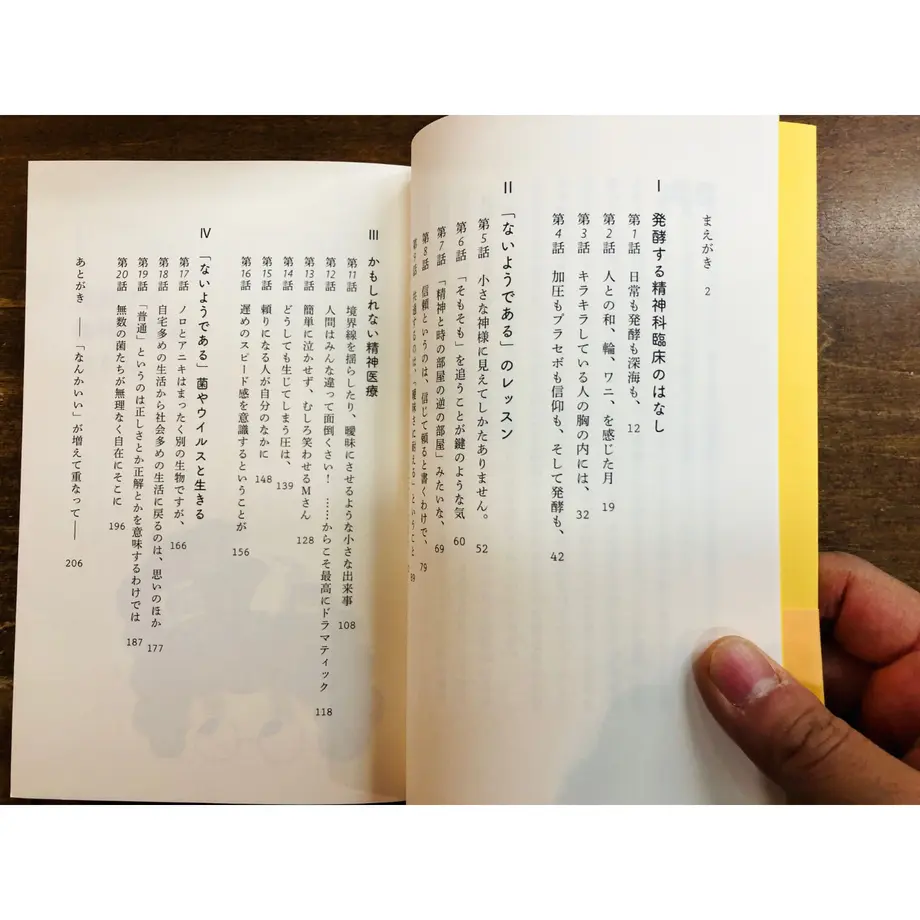 まえがき 2
I 発酵する精神科臨床のはなし
第1話 日常も発酵も深海も、 12
第2話 人との和、輪、ワニ、を感じた月 19
第3話 キラキラしている人の胸の内には、 32
第4話 加圧もプラセボも信仰も、そして発酵も、 42
II 「ないようである」のレッスン
第5話 小さな神様に見えてしかたありません。 52
第6話 「そもそも」を追うことが鍵のような気 60
第7話 「精神と時の部屋の逆の部屋」みたいな、 69
第8話 信頼というのは、信じて頼ると書くわけで、 79
第9話 共通するのは、「曖昧さに耐える」ということ 89
III かもしれない精神医療
第11話 境界線を揺らしたり、曖昧にさせるような小さな出来事 108
第12話 人間はみんな違って面倒くさい! ……からこそ最高にドラマティック 118
第13話 簡単に泣かせず、むしろ笑わせるMさん 128
第14話 どうしても生じてしまう圧は、 139
第15話 頼りになる人が自分のなかに 148
第16話 遅めのスピード感を意識するということが 156
IV 「ないようである」菌やウイルスと生きる
第17話 ノロとアニキはまったく別の生物ですが、 166
第18話 自宅多めの生活から社会多めの生活に戻るのは、思いのほか 177
第19話 「普通」というのは正しさとか正解とかを意味するわけでは 187
第20話 無数の菌たちが無理なく自在にそこに 196
あとがき ――「なんかいい」が増えて重なって―― 206